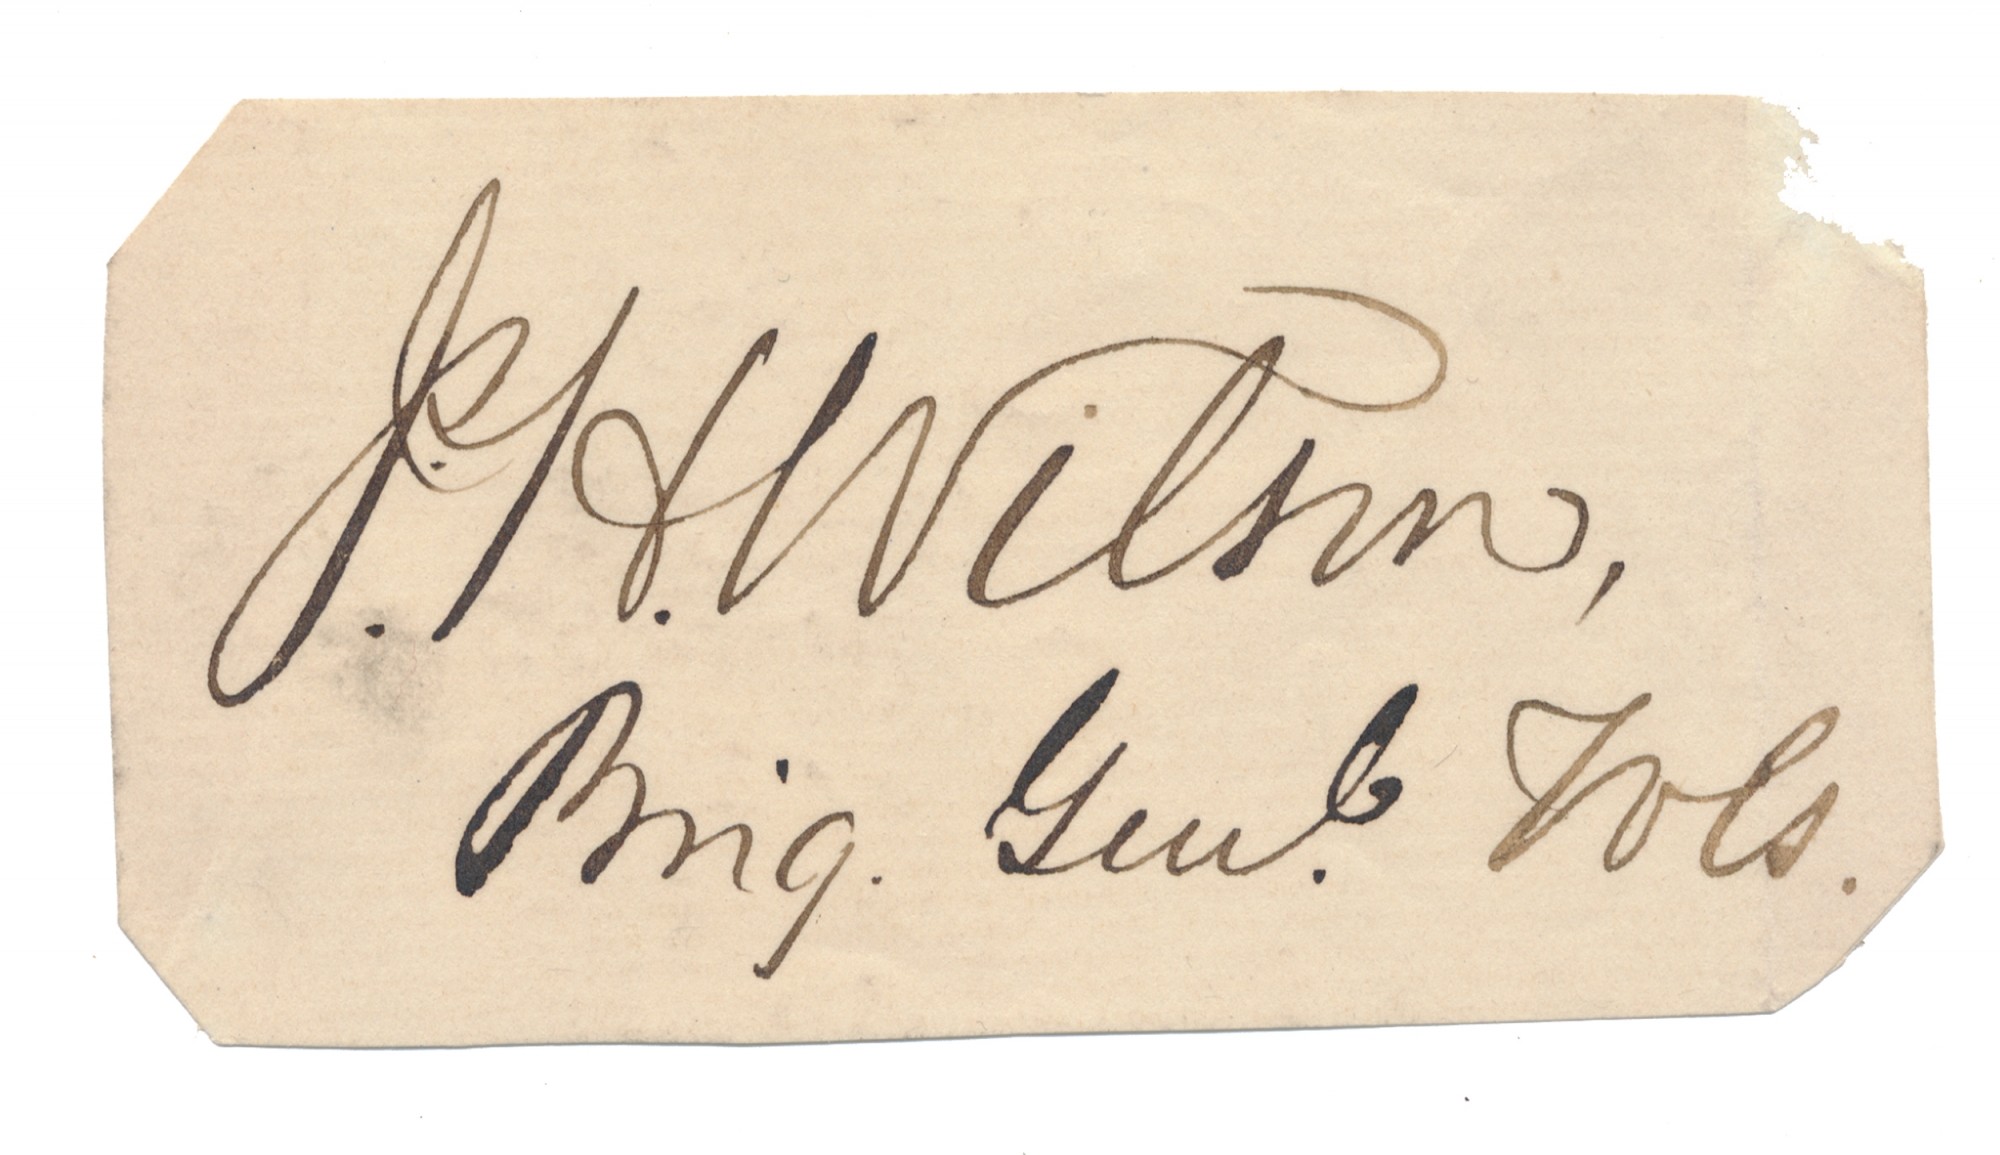 J. H. Wilson,
Brig. Genl. Vols.